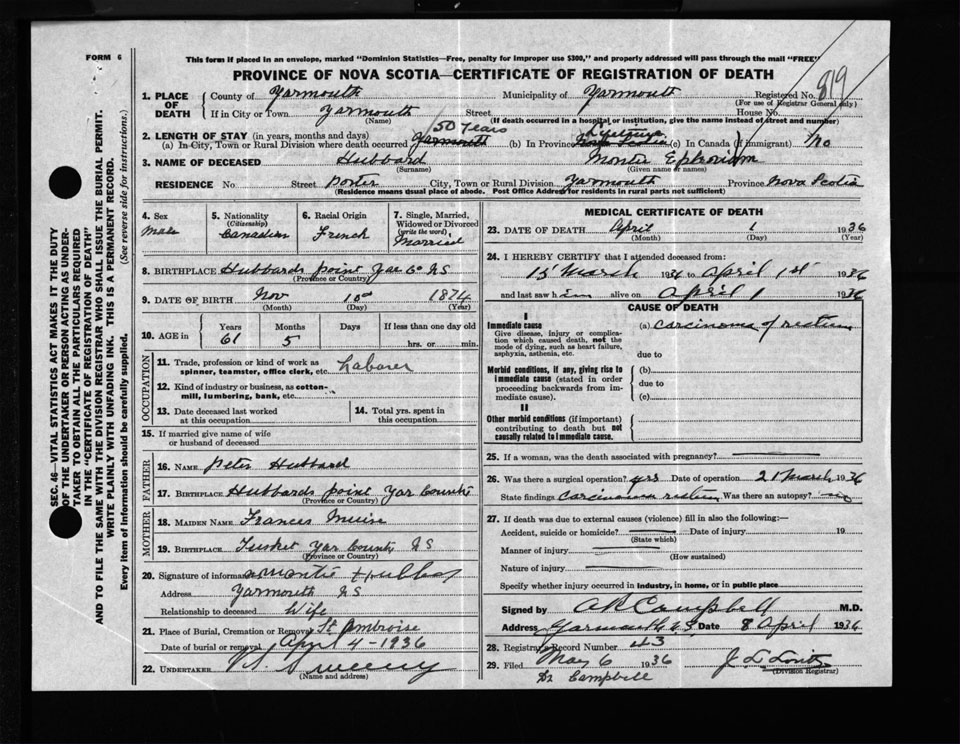 FORM 6
This form if placed in an envelope, marked "Dominion Statistics—Free, penalty for improper use $300," and properly addressed will pass through the mail "FREE"
PROVINCE OF NOVA SCOTIA—CERTIFICATE OF REGISTRATION OF DEATH
819
1. PLACE OF DEATH { County of Yarmouth Municipality of Yarmouth Registered No.
(For use of Registrar General only)
If in City or Town Yarmouth Street House No.
(Name) (If death occurred in a hospital or institution, give the name instead of street and number)
2. LENGTH OF STAY (in years, months and days) 50 Years
(a) In City, Town or Rural Division where death occurred Yarmouth (b) In Province Nova Scotia (c) In Canada (if immigrant) no
3. NAME OF DECEASED Hubbard
(Surname) (Given name or names)
RESIDENCE No Street Porter City, Town or Rural Division Yarmouth Province Nova Scotia
(Residence means usual place of abode. Post Office Address for residents in rural parts not sufficient)
4. Sex Male
5. Nationality (Citizenship) Canadian
6. Racial Origin French
7. Single, Married, Widowed or Divorced (write the word) Married
8. BIRTHPLACE Hubbards point Yar Co NS
(Province or Country)
9. DATE OF BIRTH Nov 1874
(Month) (Day) (Year)
10. AGE in Years 61 Months 5 Days If less than one day old hrs. or min.
OCCUPATION
11. Trade, profession or kind of work as spinner, teamster, office clerk, etc. Laborer
12. Kind of industry or business, as cotton-mill, lumbering, bank, etc.
13. Date deceased last worked at this occupation
14. Total yrs. spent in this occupation
15. If married give name of wife or husband of deceased
FATHER
16. NAME Peter Hubbard
17. BIRTHPLACE Hubbards point Yar County
(Province or Country)
MOTHER
18. MAIDEN NAME Frances Muise
19. BIRTHPLACE Tusket Yar County NS
(Province or Country)
20. Signature of informant
Address Yarmouth NS
Relationship to deceased Wife
21. Place of Burial, Cremation or Removal St Ambroise
Date of burial or removal April 4-1936
22. UNDERTAKER Sweeny
(Name and address)
MEDICAL CERTIFICATE OF DEATH
23. DATE OF DEATH April 1 1936
(Month) (Day) (Year)
24. I HEREBY CERTIFY that I attended deceased from:
15 March 1936 to April 1st 1936
and last saw him alive on April 1 1936
CAUSE OF DEATH
I
Immediate cause
Give disease, injury or complication which caused death, not the mode of dying, such as heart failure, asphyxia, asthenia, etc.
(a) Carcinoma of rectum
due to
Morbid conditions, if any, giving rise to immediate cause (stated in order proceeding backwards from immediate cause).
(b)
due to
(c)
II
Other morbid conditions (if important) contributing to death but not causally related to immediate cause.
25. If a woman, was the death associated with pregnancy?
26. Was there a surgical operation? yes Date of operation 21 March 1936
State findings Carcinoma rectum Was there an autopsy? no
27. If death was due to external causes (violence) fill in also the following:—
Accident, suicide or homicide? Date of injury 19
(State which)
Manner of injury
(How sustained)
Nature of injury
Specify whether injury occurred in industry, in home, or in public place
Signed by A R Campbell M.D.
Address Yarmouth N S Date 8 April 1936
28. Registrar's Record Number
29. Filed May 6 1936
(Division Registrar)
Dr Campbell
SEC. 46—VITAL STATISTICS ACT MAKES IT THE DUTY
OF THE UNDERTAKER OR PERSON ACTING AS UNDER-
TAKER TO OBTAIN ALL THE PARTICULARS REQUIRED
IN THE "CERTIFICATE OF REGISTRATION OF DEATH"
AND TO FILE THE SAME WITH THE DIVISION REGISTRAR WHO SHALL ISSUE THE BURIAL PERMIT.
WRITE PLAINLY WITH UNFADING INK. THIS IS A PERMANENT RECORD.
Every item of information should be carefully supplied. (See reverse side for instructions.)